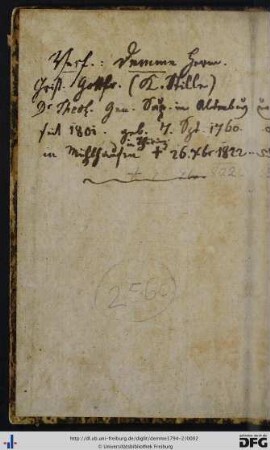 Verf.: Demme Herm.
Christ. Gottfr. (K. Stille)
Dr. Theol. Gen. Sup. in Altenburg
seit 1801. geb. 7. Spt. 1760.
in Thüring
in Mühlhausen † 26. Xbr 1822
2560
http://dl.ub.uni-freiburg.de/diglit/demme1794-2/0002
© Universitätsbibliothek Freiburg